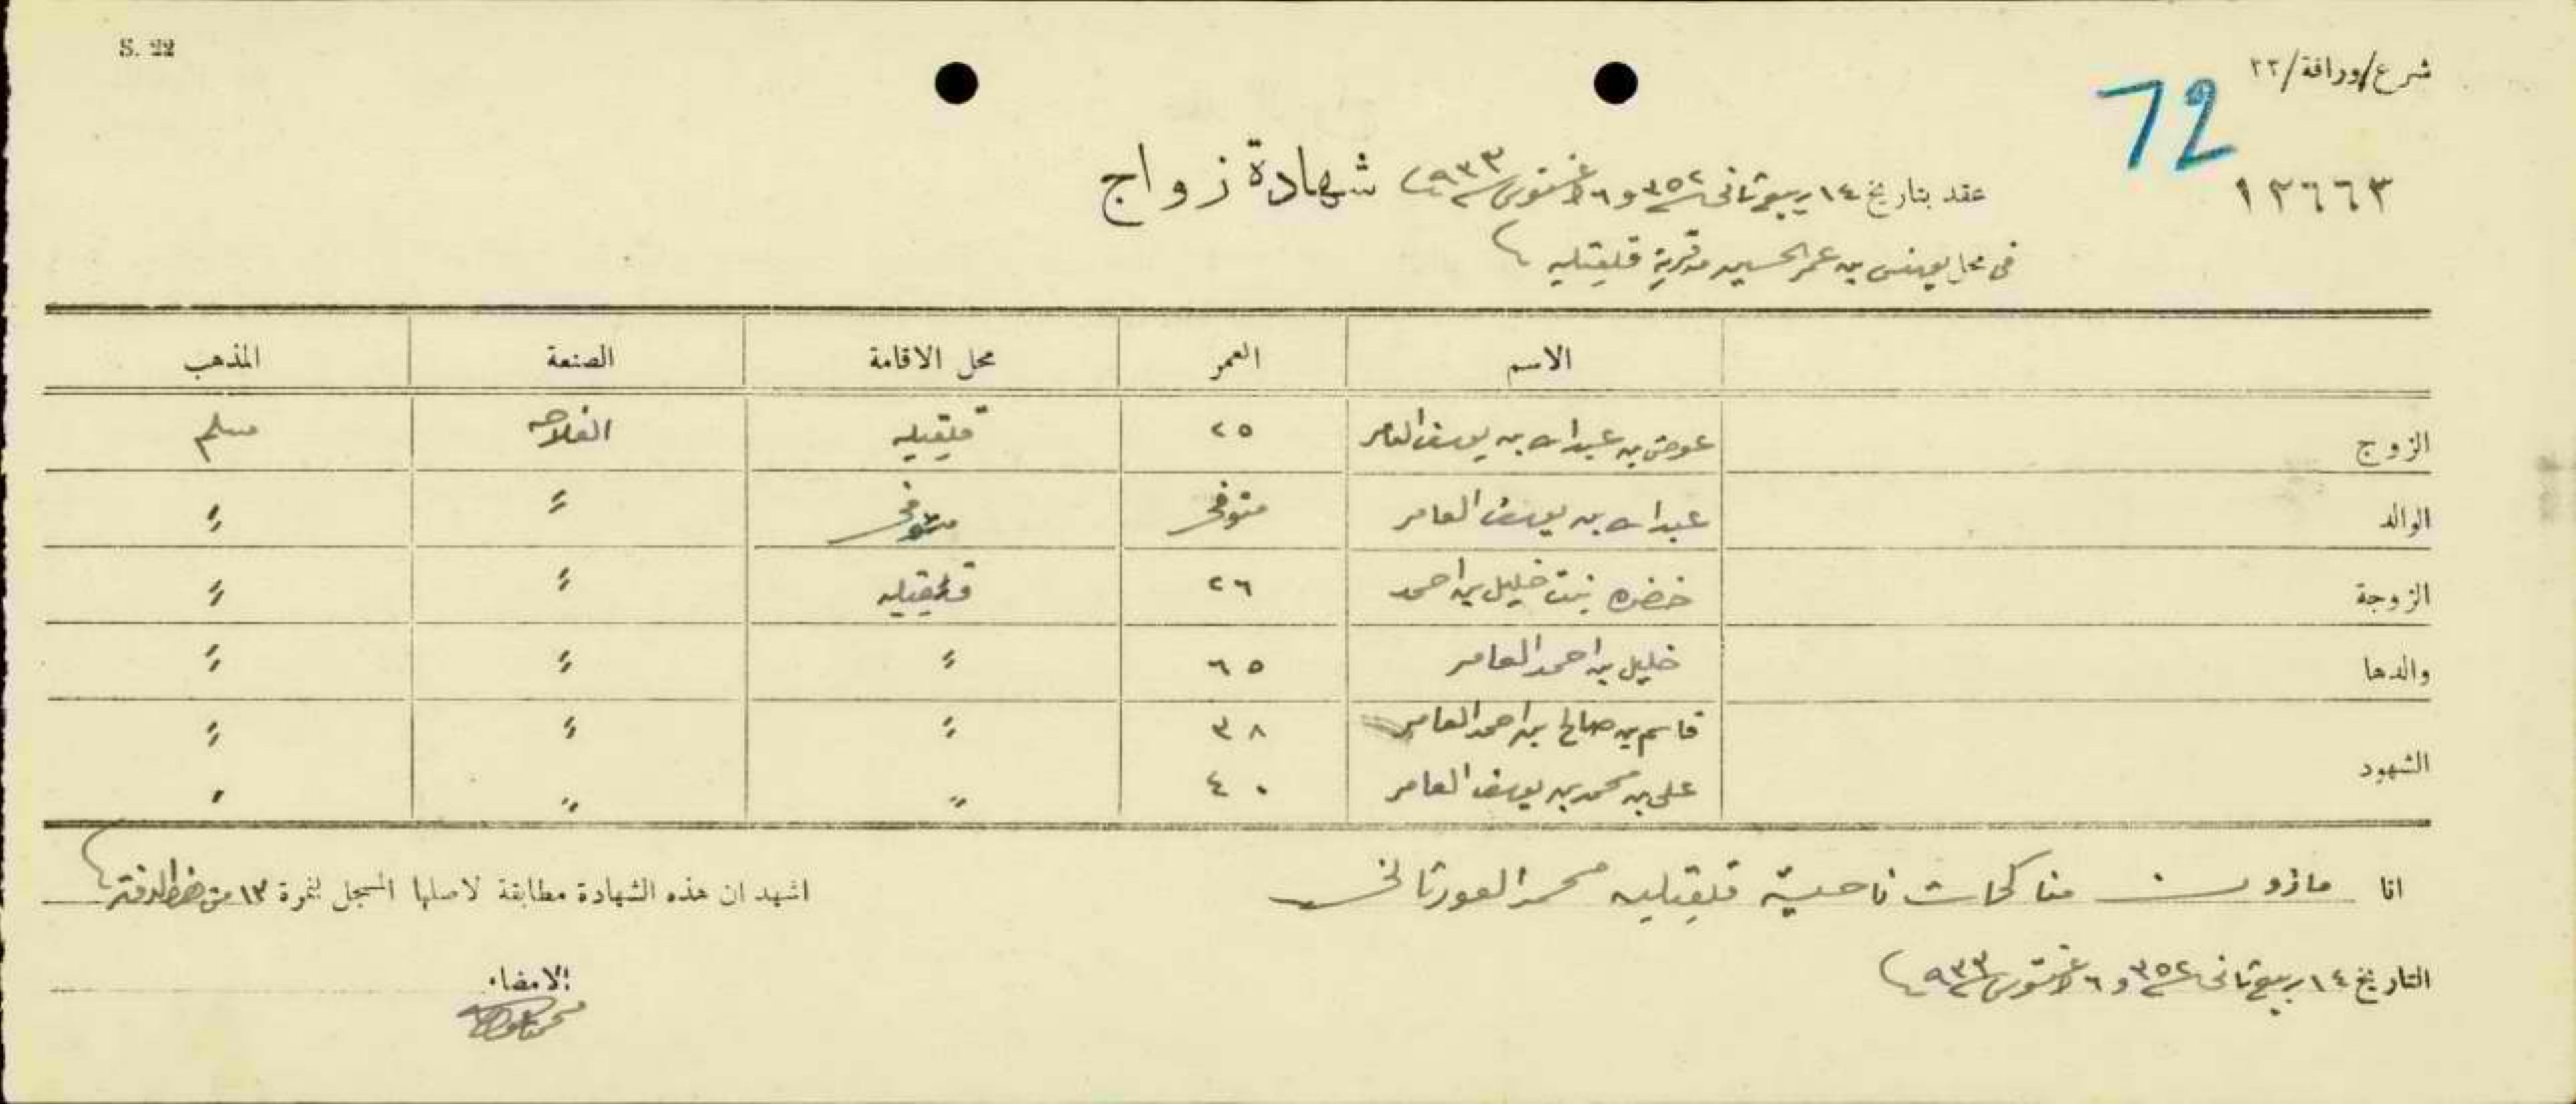 S. 22
شرع/وراقة/٢٢
72
١٢٦٦٣
شهادة زواج
عقد بتاريخ ١٤ ربيع ثاني ٣٥٢ و ٦ اغستوس ٩٣٣
في محل يونس بن عمر الحسين من قرية قلقيليه
الاسم العمر محل الاقامة الصنعة المذهب
الزوج عوض بن عبدالله بن يوسف العامر ٢٥ قلقيليه الفلاحه مسلم
الوالد عبدالله بن يوسف العامر متوفى متوفى " "
الزوجة خضره بنت خليل بن احمد ٢٦ قلقيليه " "
والدها خليل بن احمد العامر ٦٥ " " "
الشهود قاسم بن صالح بن احمد العامر ٣٨ " " "
علي بن محمد بن يوسف العامر ٤٠ " " "
انا مأذون مناكحات ناحية قلقيليه محمد العورتاني
اشهد ان هذه الشهادة مطابقة لاصلها المسجل لنمرة ١٣ من الدفتر
التاريخ ١٤ ربيع ثاني ٣٥٢ و ٦ اغستوس ٩٣٣
الامضاء